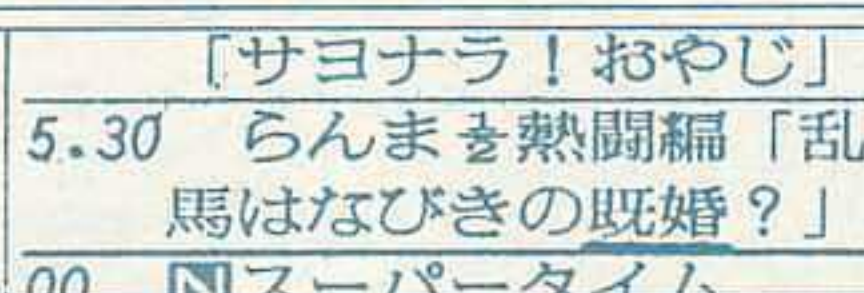 「サヨナラ！おやじ」
5.30 らんま½熱闘編「乱
馬はなびきの既婚？」
00 Nスーパータイム